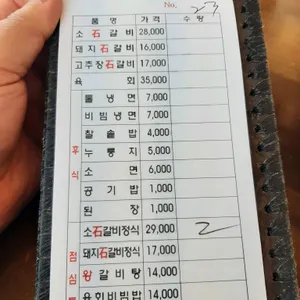 No. 27
품 명 가 격 수 량
소 石 갈 비 28,000
돼 지 石 갈 비 16,000
고추장石갈비 17,000
육 회 35,000
물 냉 면 7,000
비 빔 냉 면 7,000
찰 솥 밥 4,000
누 룽 지 5,000
소 면 6,000
공 기 밥 1,000
된 장 1,000
후 식
소石갈비정식 29,000 2
돼지石갈비정식 17,000
왕 갈 비 탕 14,000
육회비빔밥 14,000
점 심